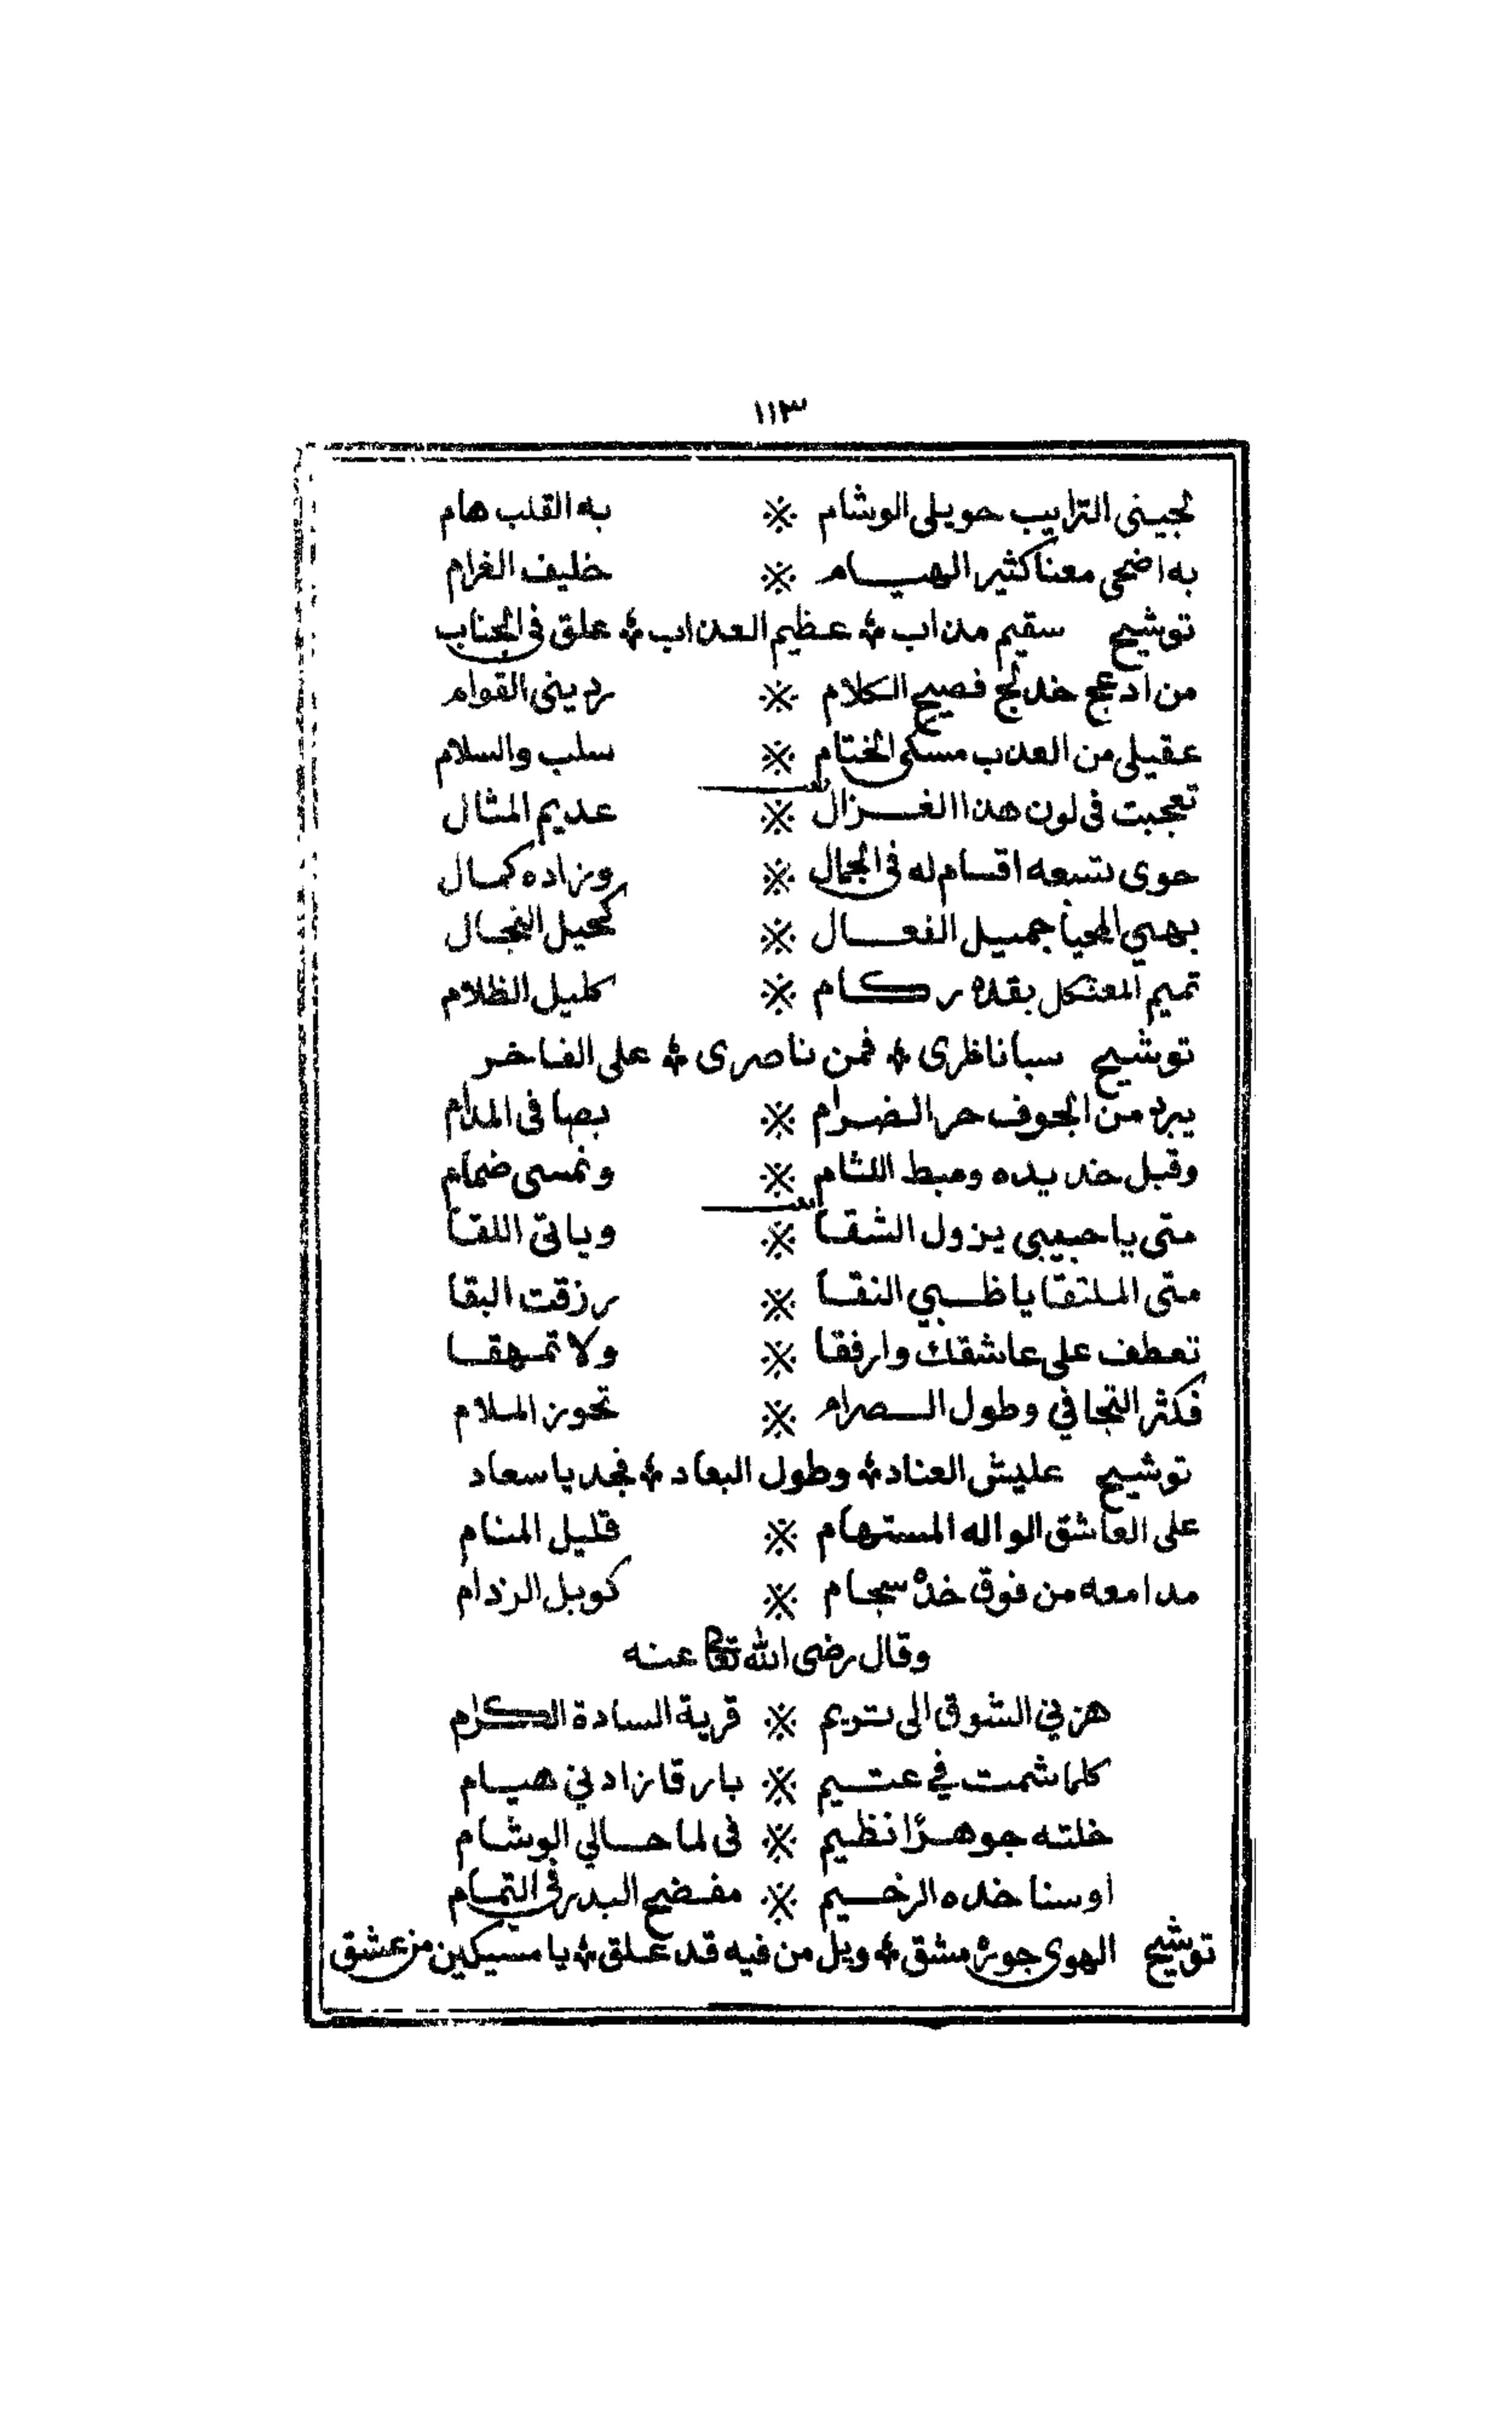 ١١٣
لجيني الترايب حويلي الوشام ※ به القلب هام
به اضحى معنا كثير الهيام ※ خليف الغرام
توشيح سقيم مذاب ۞ عظيم العذاب ۞ علق في الجناب
من ادعج خدلج فصيح الكلام ※ رديني القوام
عقيلي من العذب مسكي الختام ※ سلب والسلام
تعجبت في لون هذا الغزال ※ عديم المثال
حوى تسعه اقسام له في الجمال ※ وزاده كمال
بهي المحيا جميل الفعال ※ كحيل النجال
تميم المعثكل بقده ركام ※ كليل الظلام
توشيح سبا ناظري ۞ فمن ناصري ۞ على الفاخر
يبرد من الجوف حر الضرام ※ بصافى المدام
وقبل خديده وميط اللثام ※ ونمسى ضمام
متى يا حبيبي يزول الشقا ※ وياتي اللقا
متى الملتقا يا ظبي النقا ※ رزقت البقا
تعطف على عاشقك وارفقا ※ ولا تمهقا
فكثر التجافي وطول الصرام ※ تحوز الملام
توشيح عليش العناد ۞ وطول البعاد ۞ فجد يا سعاد
على العاشق الواله المستهام ※ قليل المنام
مدامعه من فوق خده سجام ※ كوبل الرذام
وقال رضى الله تعا عنه
هزني الشوق الى تريم ※ قرية السادة الكرام
كلما شمت في عتيم ※ بارقا زادني هيام
خلته جوهرًا نظيم ※ فى لما حالي الوشام
اوسنا خده الرخيم ※ مفضح البدر في التمام
توشيح الهوى جوره مشق ۞ ويل من فيه قد علق ۞ يا مسيكين من عشق